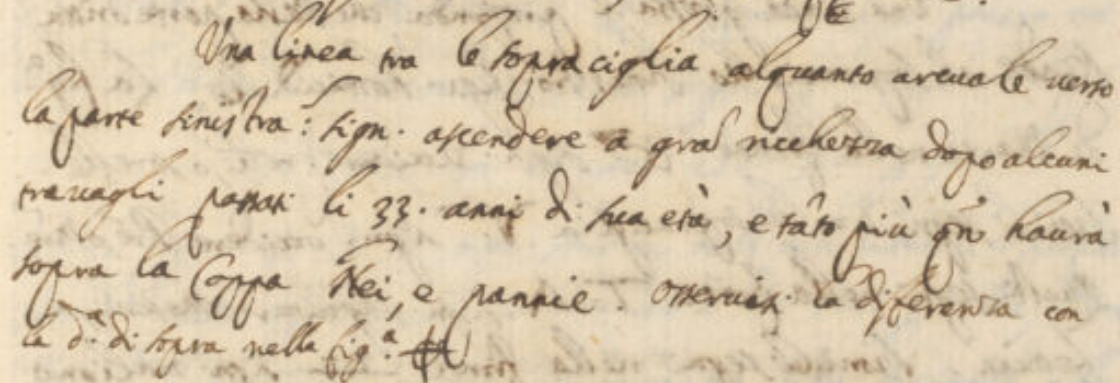 Una linea tra le sopraciglia alquanto arcuale verso
la parte sinistra: sign. ascendere a gra͂ ricchezza dopo alcuni
travagli passati li 33. anni di sua età, e ta͂to più qn͂ haurà
sopra la Coppa Nei, e pannie. Osservisi la diferenza con
le d.ᵃ di sopra nella fig.ᵃ